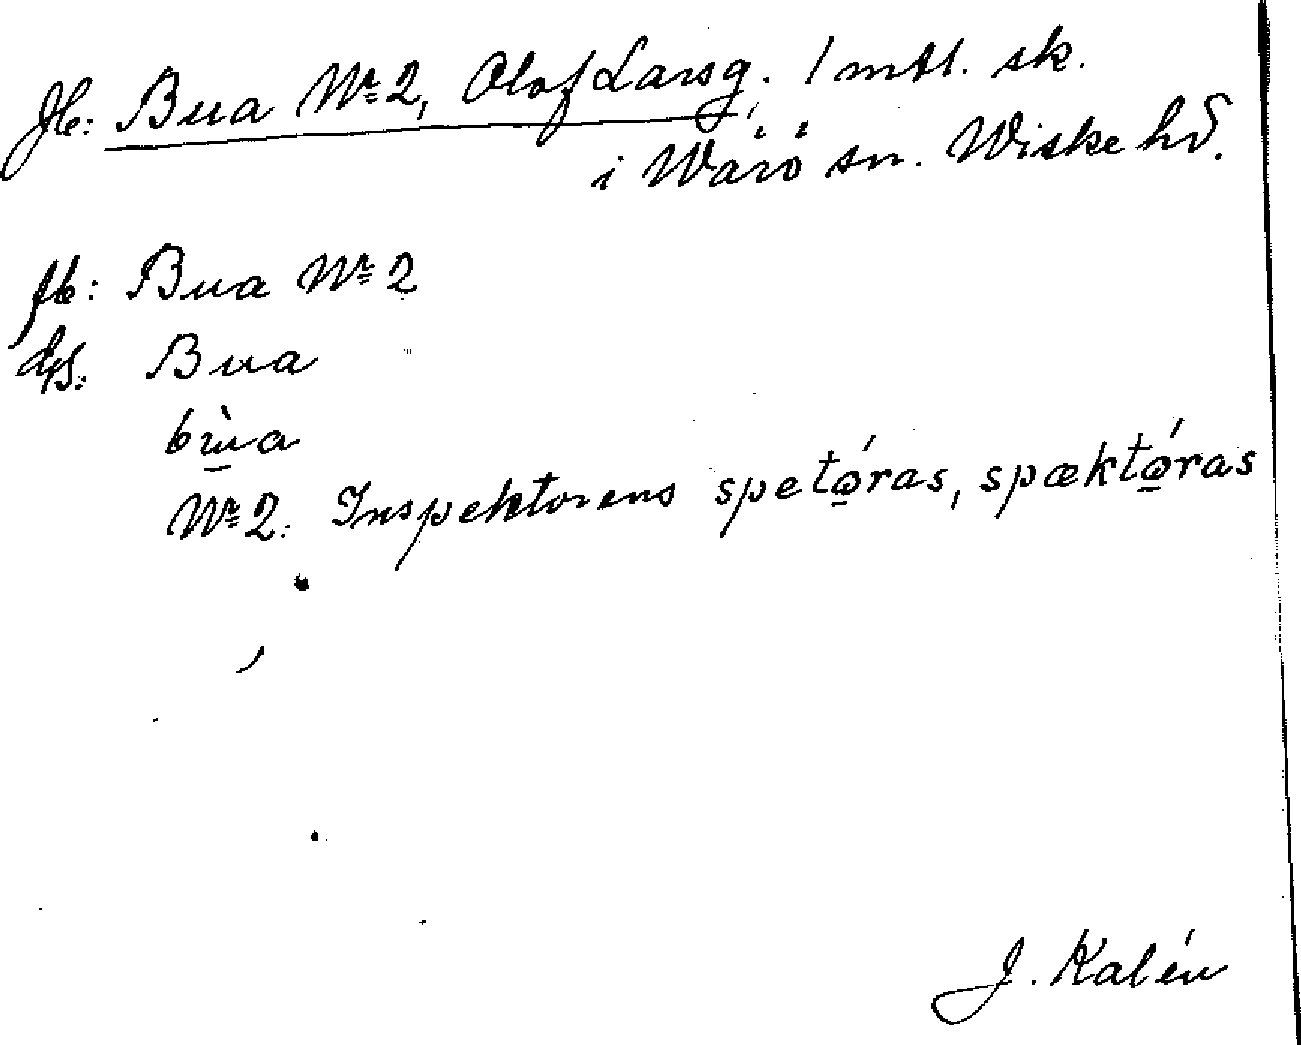 Jb: Bua Nr 2, Olof Larsg. 1 mtl. sk.
i Wärö sn. Wiske hd.
fb: Bua Nr 2
ds. Bua
bùa
Nr 2: Inspektorens spetǿras, spæktǿras
J. Kalén